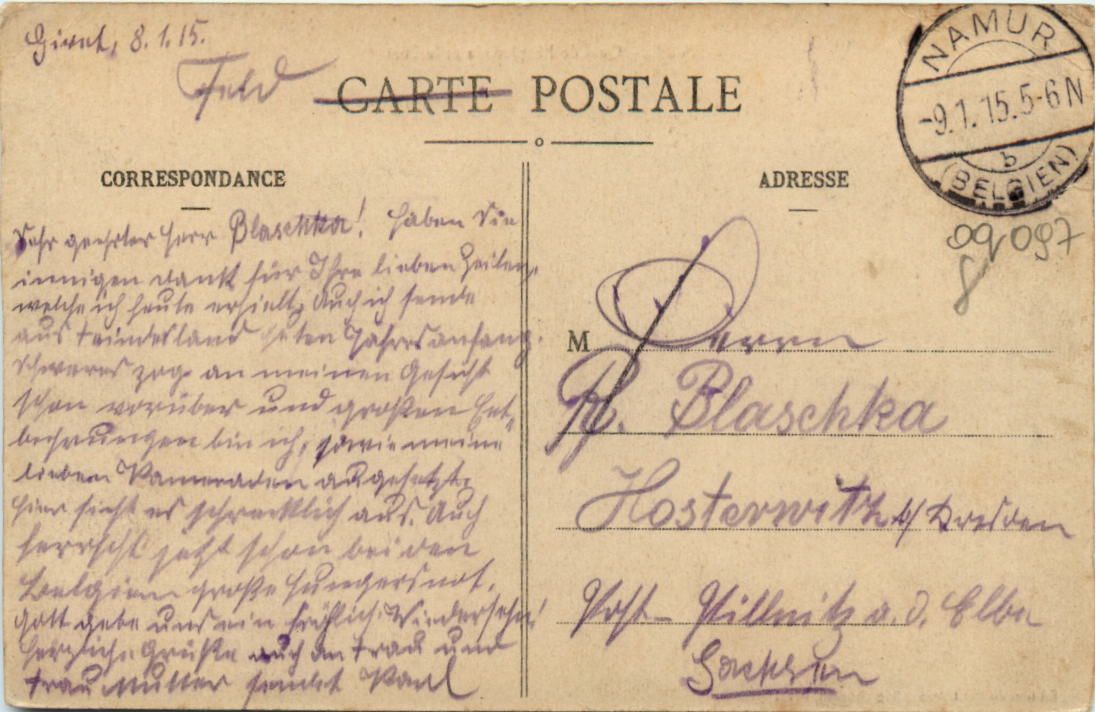 Givet, 8.1.15.
Feld
CARTE POSTALE
CORRESPONDANCE
ADRESSE
NAMUR
-9.1.15.5-6N
b
(BELGIEN)
09097
8
Sehr geehrter Herr Blaschka! Haben Sie
innigen Dank für Ihre lieben Zeilen,
welche ich heute erhielt. Auch ich sende
aus Feindesland guten Jahresanfang.
Schweres zog an meinen Gesicht
schon vorüber und großen Ent-
behrungen bin ich, sowie meine
lieben Kameraden ausgesetzt.
Hier sieht es schrecklich aus. Auch
herrscht jetzt schon bei den
Belgiern große Hungersnot.
Gott gebe uns ein fröhlich. Wiedersehn!
Herzliche Grüße auch an Frau und
Frau Mutter sendet
M Herrn
R. Blaschka
Hosterwitz b/Dresden
Post- Pillnitz a. d. Elbe
Sachsen